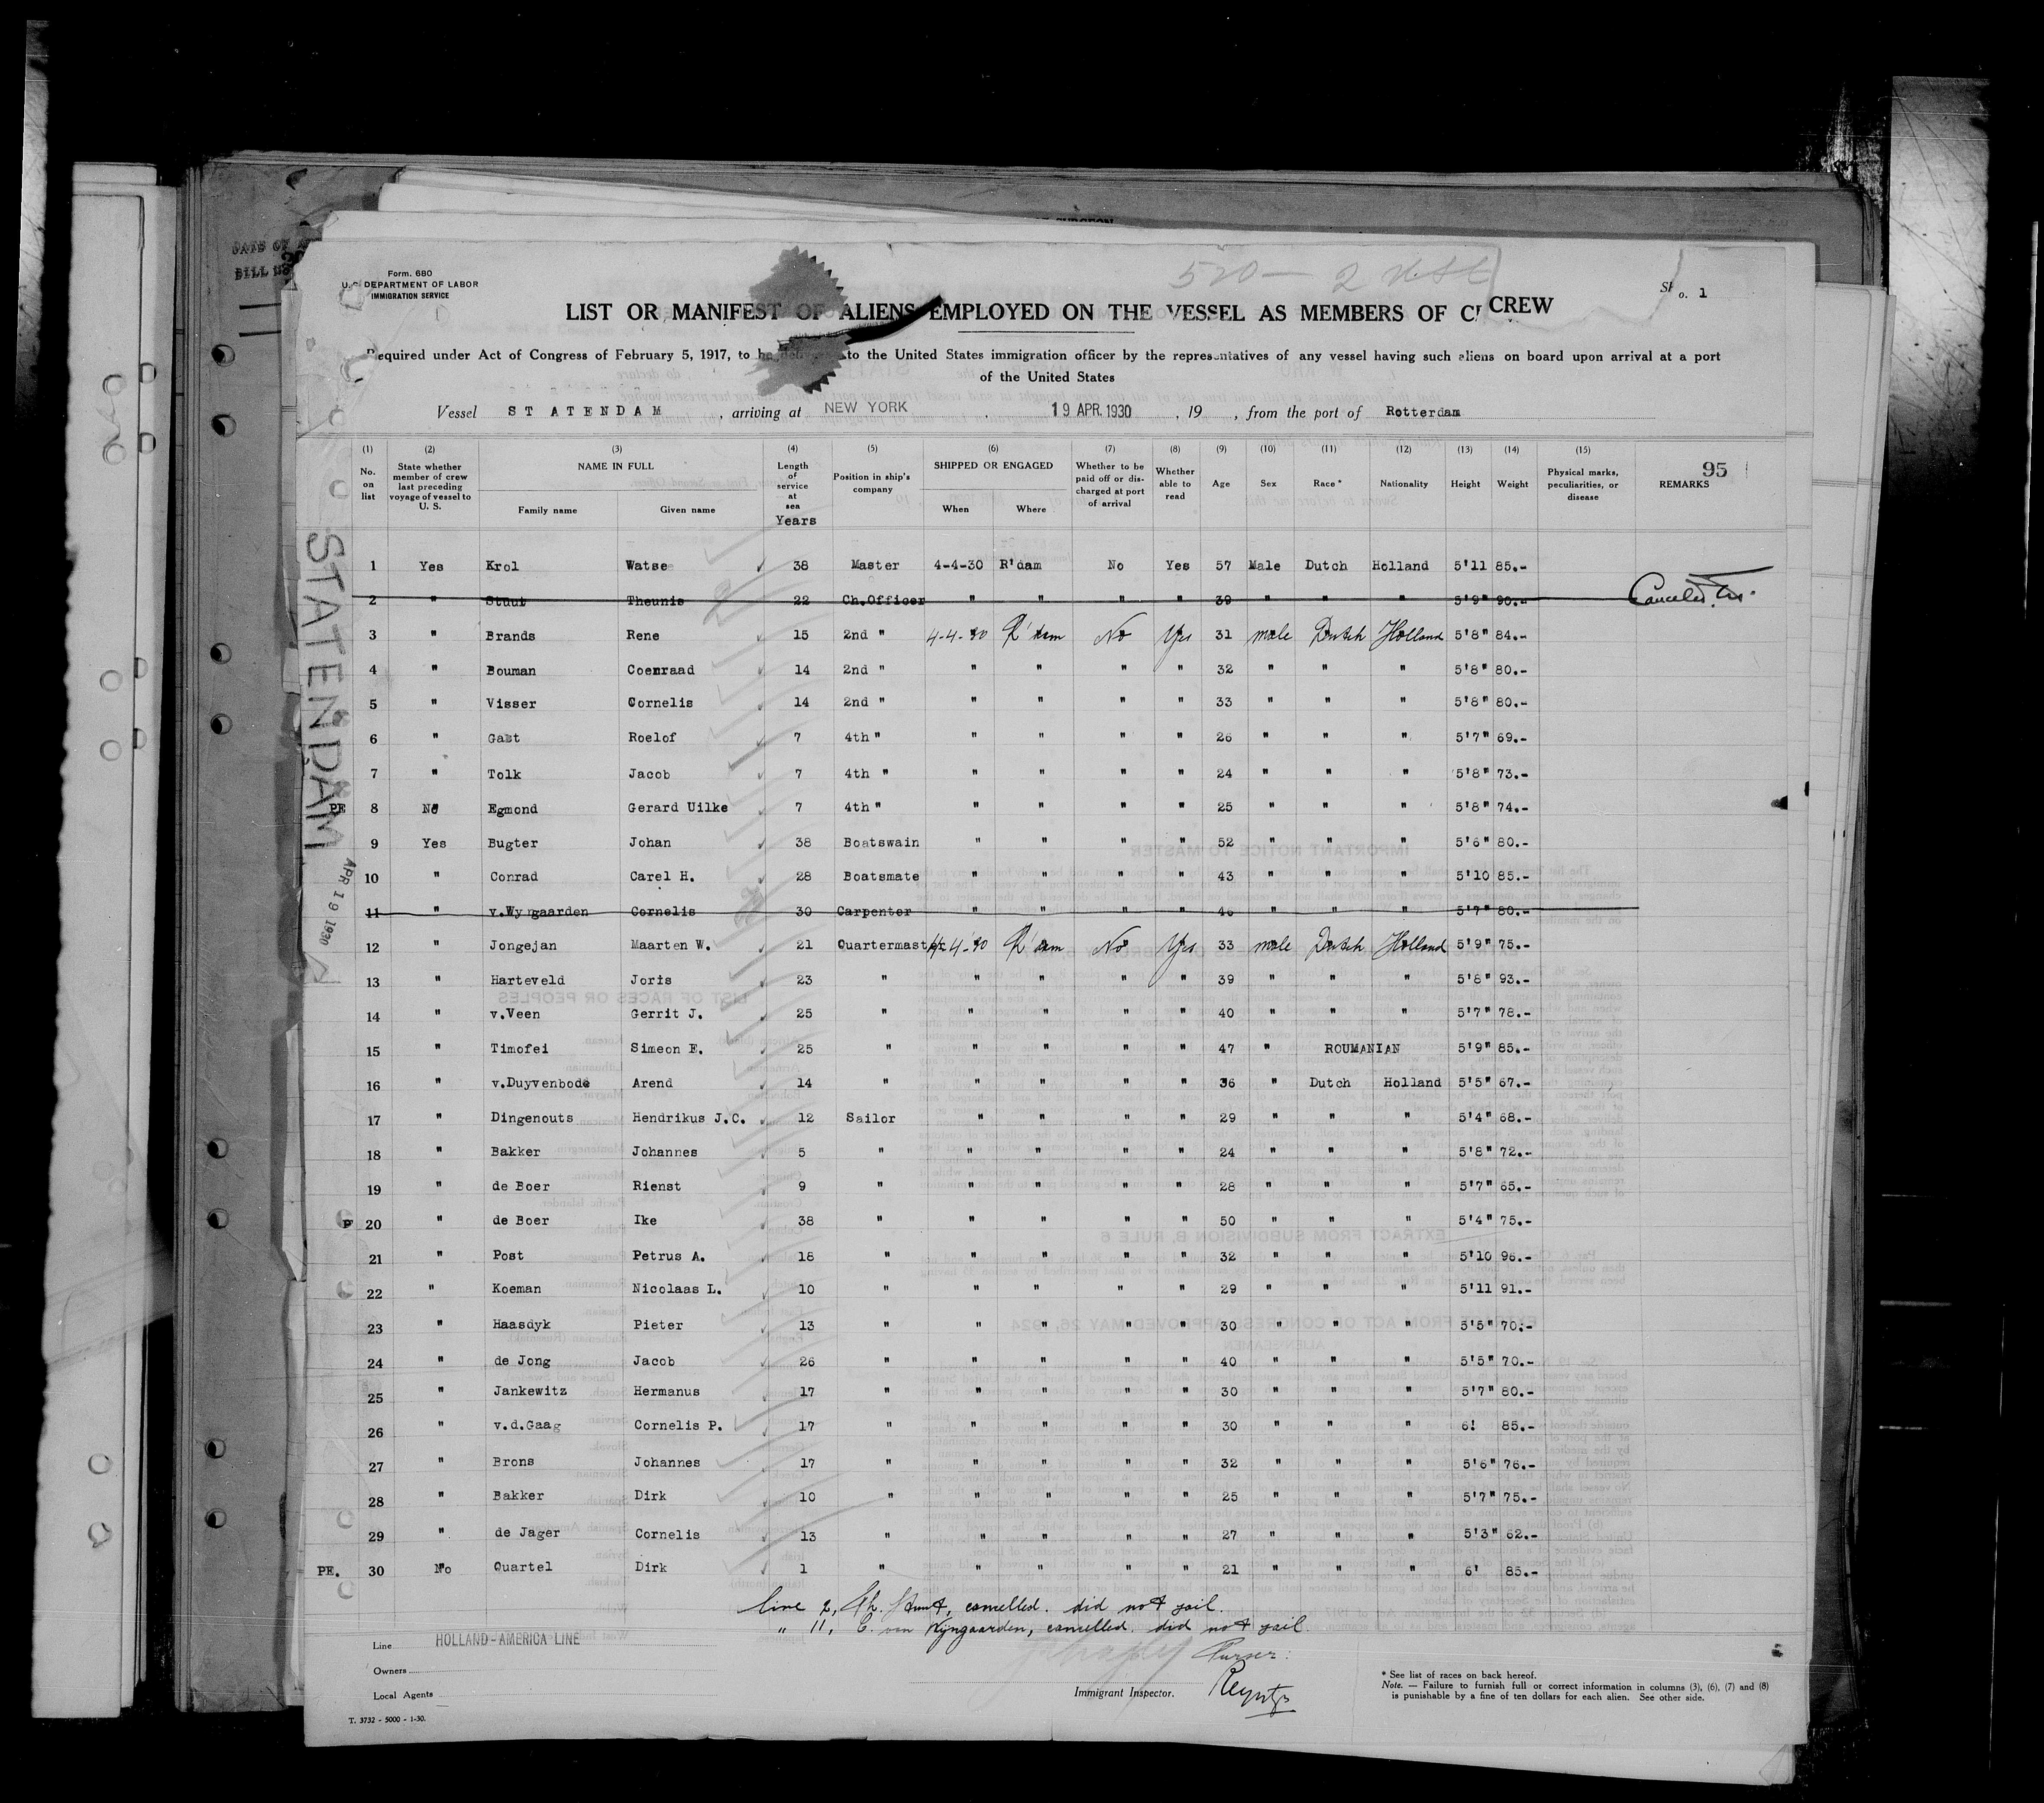 DATE OF
BILL
Form. 680
U. S. DEPARTMENT OF LABOR
IMMIGRATION SERVICE
520 — 2
o. 1
LIST OR MANIFEST OF ALIENS EMPLOYED ON THE VESSEL AS MEMBERS OF CREW
Required under Act of Congress of February 5, 1917, to be delivered to the United States immigration officer by the representatives of any vessel having such aliens on board upon arrival at a port
of the United States
Vessel STATENDAM , arriving at NEW YORK , 19 APR. 1930 , 19 , from the port of Rotterdam
(1) (2) (3) (4) (5) (6) (7) (8) (9) (10) (11) (12) (13) (14) (15)
No. on list | State whether member of crew last preceding voyage of vessel to U. S. | NAME IN FULL Family name Given name | Length of service at sea Years | Position in ship's company | SHIPPED OR ENGAGED When Where | Whether to be paid off or discharged at port of arrival | Whether able to read | Age | Sex | Race * | Nationality | Height | Weight | Physical marks, peculiarities, or disease | REMARKS 95
STATENDAM
APR 19 1930
1 Yes Krol Watse 38 Master 4-4-30 R'dam No Yes 57 Male Dutch Holland 5'11 85.-
2 " Stuut Theunis 22 Ch.Officer " " " " 39 " " " 5'9" 90.- Canceled
3 " Brands Rene 15 2nd " 4-4-30 R'dam No Yes 31 male Dutch Holland 5'8" 84.-
4 " Bouman Coenraad 14 2nd " " " " " 32 " " " 5'8" 80.-
5 " Visser Cornelis 14 2nd " " " " " 33 " " " 5'8" 80.-
6 " Gast Roelof 7 4th " " " " " 26 " " " 5'7" 69.-
7 " Tolk Jacob 7 4th " " " " " 24 " " " 5'8" 73.-
PE 8 No Egmond Gerard Uilke 7 4th " " " " " 25 " " " 5'8" 74.-
9 Yes Bugter Johan 38 Boatswain " " " " 52 " " " 5'6" 80.-
10 " Conrad Carel H. 28 Boatsmate " " " " 43 " " " 5'10 85.-
11 " v.Wyngaarden Cornelis 30 Carpenter " " " " 46 " " " 5'7" 80.-
12 " Jongejan Maarten W. 21 Quartermaster 4-4-30 R'dam No Yes 33 male Dutch Holland 5'9" 75.-
13 " Harteveld Joris 23 " " " " " 39 " " " 5'8" 93.-
14 " v.Veen Gerrit J. 25 " " " " " 40 " " " 5'7" 78.-
15 " Timofei Simeon E. 25 " " " " " 47 " ROUMANIAN 5'9" 85.-
16 " v.Duyvenbode Arend 14 " " " " " 36 " Dutch Holland 5'5" 67.-
17 " Dingenouts Hendrikus J.C. 12 Sailor " " " " 29 " " " 5'4" 68.-
18 " Bakker Johannes 5 " " " " " 24 " " " 5'8" 72.-
19 " de Boer Rienst 9 " " " " " 28 " " " 5'7" 65.-
P 20 " de Boer Ike 38 " " " " " 50 " " " 5'4" 75.-
21 " Post Petrus A. 18 " " " " " 32 " " " 5'10 96.-
22 " Koeman Nicolaas L. 10 " " " " " 29 " " " 5'11 91.-
23 " Haasdyk Pieter 13 " " " " " 30 " " " 5'5" 70.-
24 " de Jong Jacob 26 " " " " " 40 " " " 5'5" 70.-
25 " Jankewitz Hermanus 17 " " " " " 30 " " " 5'7" 80.-
26 " v.d.Gaag Cornelis P. 17 " " " " " 30 " " " 6' 85.-
27 " Brons Johannes 17 " " " " " 32 " " " 5'6" 76.-
28 " Bakker Dirk 10 " " " " " 25 " " " 5'7" 75.-
29 " de Jager Cornelis 13 " " " " " 27 " " " 5'3" 62.-
PE. 30 No Quartel Dirk 1 " " " " " 21 " " " 6' 85.-
line 2, Th. Stuut, cancelled. did not sail.
" 11, C. van Wijngaarden, cancelled. did not sail.
Purser:
Line HOLLAND-AMERICA LINE
Owners
Local Agents
Immigrant Inspector.
* See list of races on back hereof.
Note. — Failure to furnish full or correct information in columns (3), (6), (7) and (8)
is punishable by a fine of ten dollars for each alien. See other side.
T. 3732 - 5000 - 1-30.